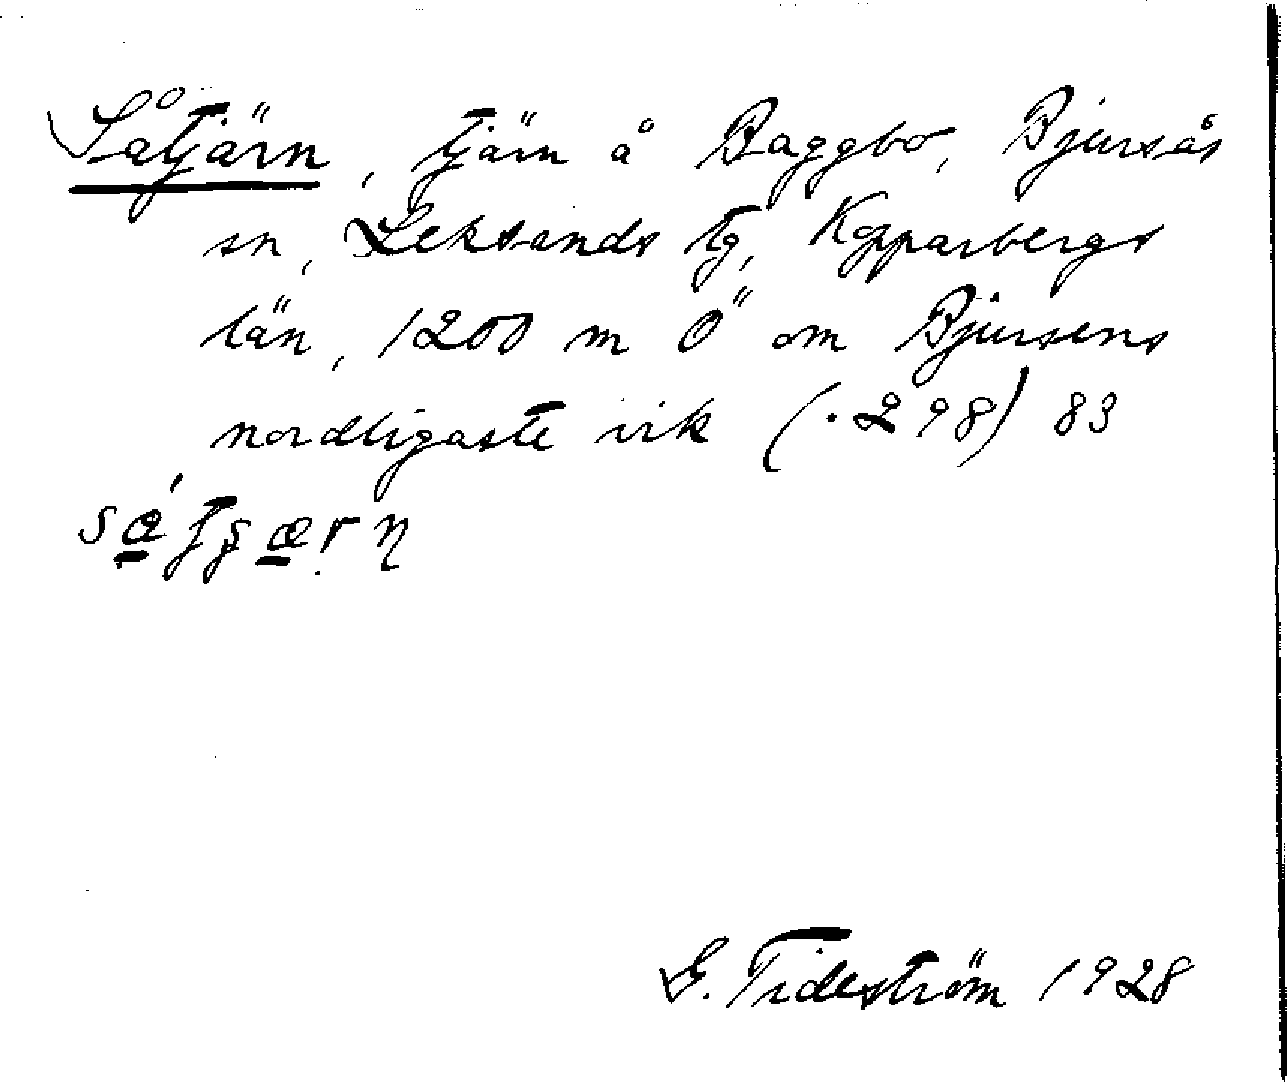 Såtjärn, tjärn å Baggbo, Bjursås
sn, Leksands tg, Kopparbergs
län, 1200 m Ö om Bjursens
nordligaste vik (.298) 83
G. Tideström 1928